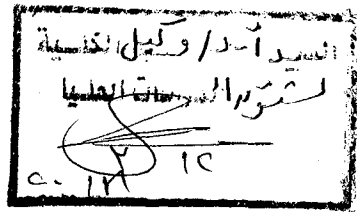 السيد أ.د/ وكيل الكلية
لشئون الدراسات العليا